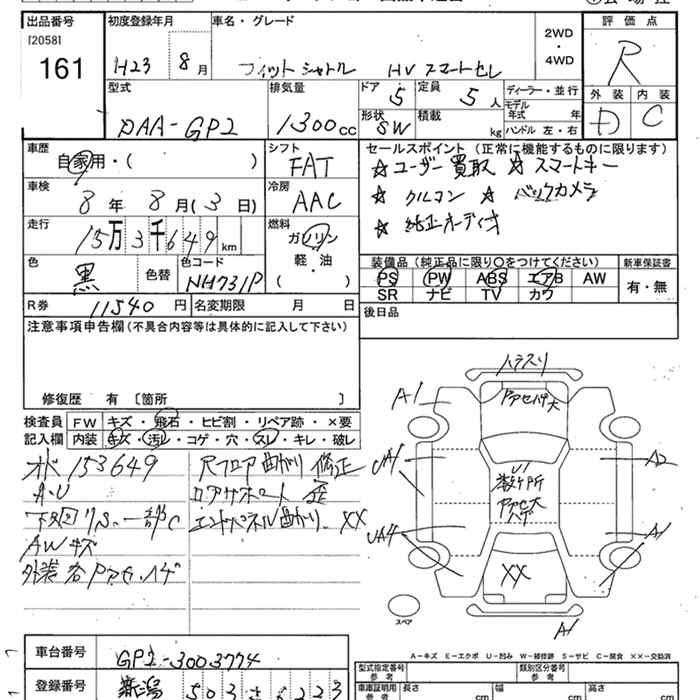 出品番号 初度登録年月 車名・グレード 評価点
[2058]
161
H23 8月 フィットシャトル HV スマートセレ
2WD
・
4WD
R
外装 内装
D C
型式 排気量 ドア 5 定員 5人 ディーラー・並行
DAA-GP2 1300cc 形状 SW 積載 kg
モデル年式 年
ハンドル 左・右
車歴 自家用・( ) シフト FAT
車検 8年 8月(3日) 冷房 AAC
走行 15万3千649km 燃料 ガソリン 軽・油 ( )
色 黒 色替 色コード NH731P
R券 11540円 名変期限 月 日
セールスポイント (正常に機能するものに限ります)
☆ユーザー買取 ☆スマートキー
☆クルコン ☆バックカメラ
☆純正オーディオ
装備品 (純正品に限り○をつけてください) 新車保証書
PS PW ABS エアB AW 有・無
SR ナビ TV カワ
後日品
注意事項申告欄 (不具合内容等は具体的に記入して下さい)
修復歴 有 〔箇所 〕
検査員 FW キズ・飛石・ヒビ割・リペア跡・×要
記入欄 内装 キズ・汚レ・コゲ・穴・スレ・キレ・破レ
153649
A・U
下回りS、一部C
AWキズ
外装各Pアセ・ハゲ
Rフロア曲がり 修正
ロアサポート 歪
エンドパネル曲がり XX
A1
UA1
UA4
A2
A1
XX
A1
スペア
A－キズ E－エクボ U－凹み W－補修跡 S－サビ C－腐食 XX－交換済
車台番号 GP2-3003774
登録番号 新潟 503 さ 1223
型式指定番号 参考 類別区分番号 参考
車庫証明用 参考 長さ cm 幅 cm 高さ cm